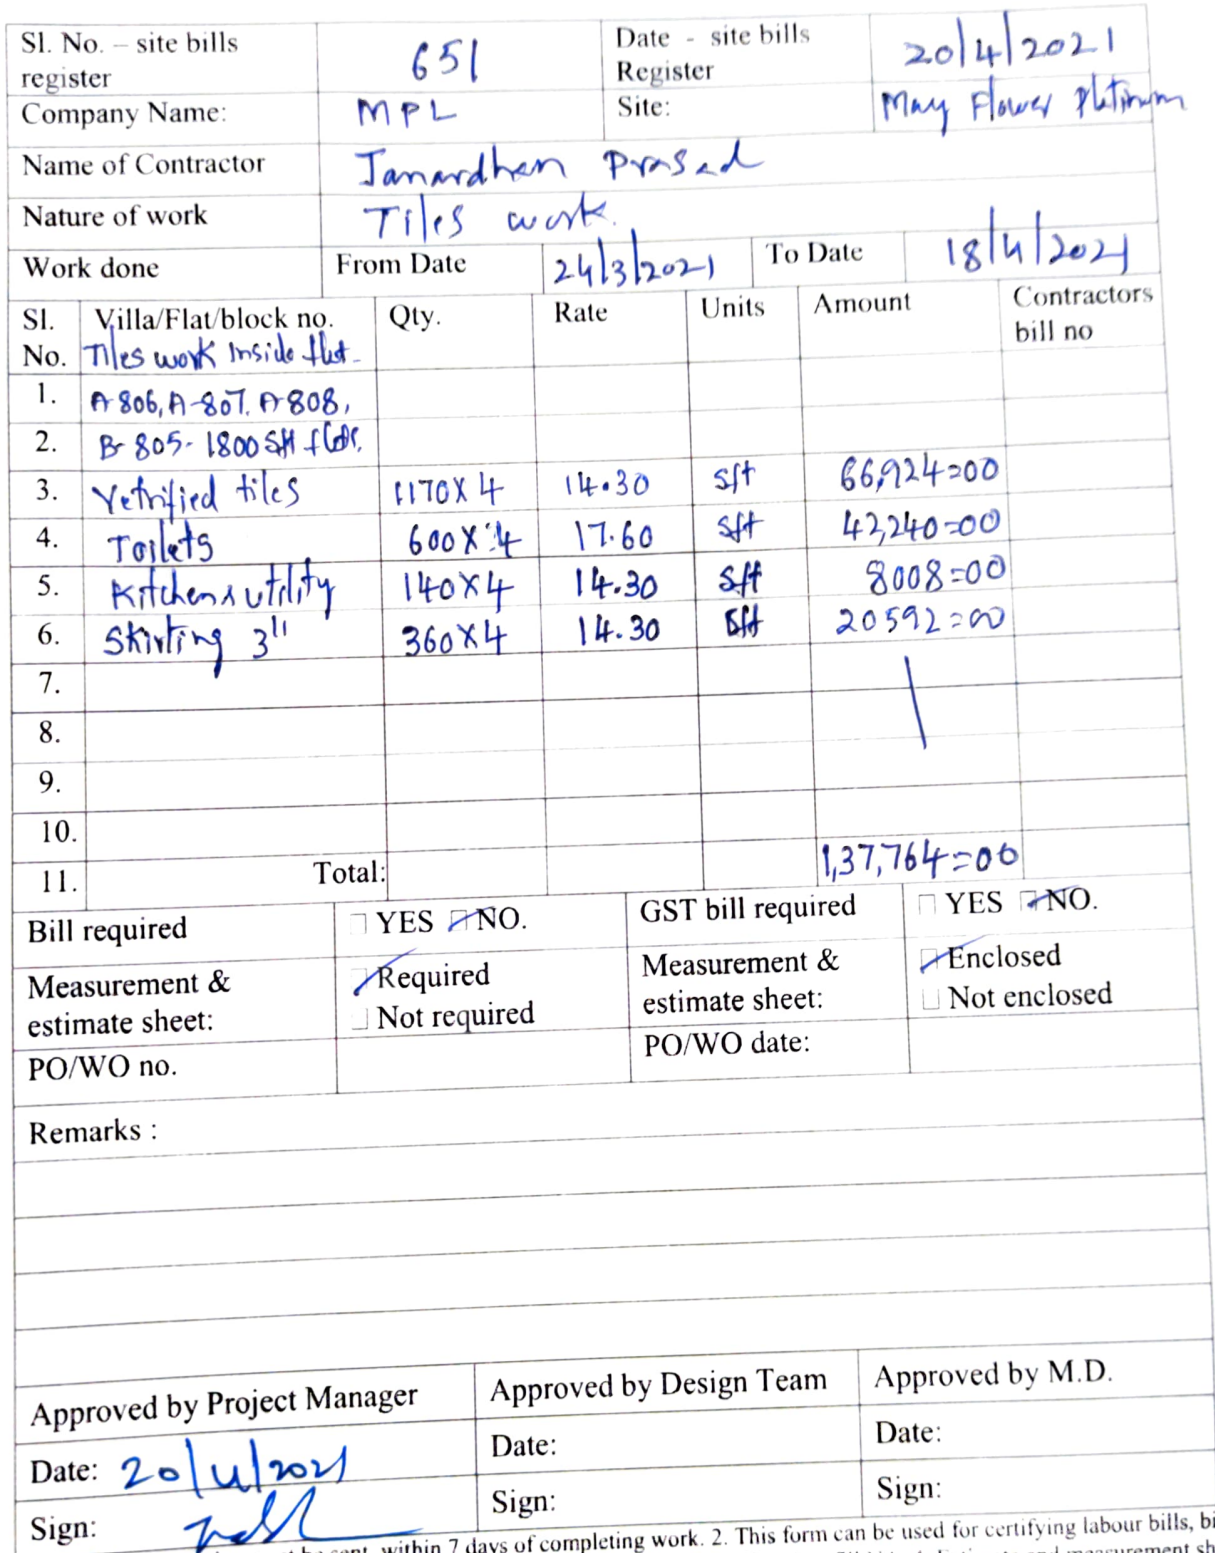 Sl. No. – site bills register 651 Date - site bills Register 20/4/2021
Company Name: MPL Site: May Flower Platinum
Name of Contractor Janardhan Prasad
Nature of work Tiles work.
Work done From Date 24/3/2021 To Date 18/4/2021
Sl. No. Villa/Flat/block no. Qty. Rate Units Amount Contractors bill no
Tiles work Inside flat
1. A-806, A-807, A-808,
2. B-805- 1800 Sft
3. Vetrified tiles 1170X4 14.30 sft 66,924=00
4. Toilets 600X4 17.60 sft 42,240=00
5. Kitchen & utility 140X4 14.30 sft 8008=00
6. Skirting 3" 360X4 14.30 sft 20592=00
7.
8.
9.
10.
11. Total: 1,37,764=00
Bill required YES NO. GST bill required YES NO.
Measurement & estimate sheet: Required Not required Measurement & estimate sheet: Enclosed Not enclosed
PO/WO no. PO/WO date:
Remarks :
Approved by Project Manager Approved by Design Team Approved by M.D.
Date: 20/4/2021 Date: Date:
Sign: Sign: Sign:
within 7 days of completing work. 2. This form can be used for certifying labour bills,